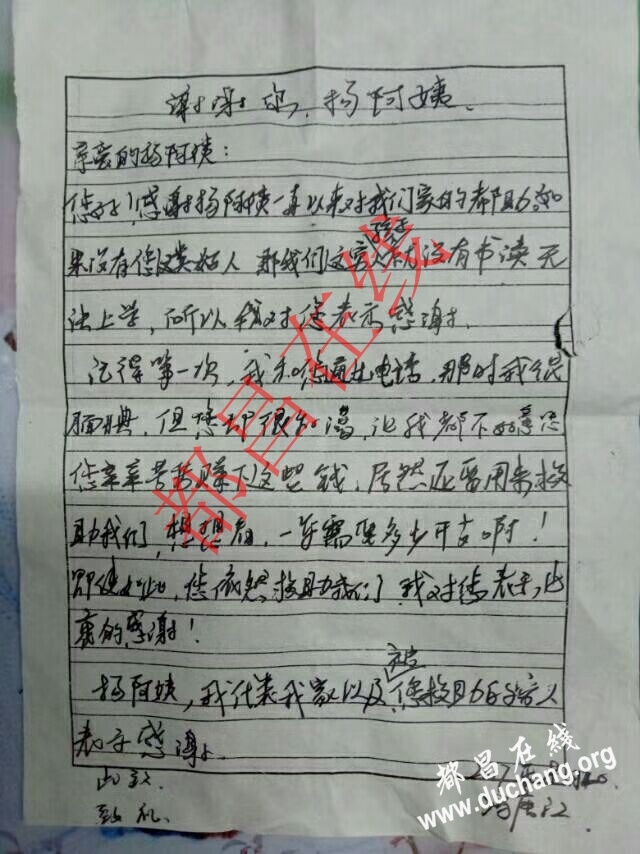 谢谢您,杨阿姨.
亲爱的杨阿姨:
您好!感谢杨阿姨一直以来对我们家的帮助,如
果没有您这类好人 那我们这穷人孩子就没有书读 无
法上学,所以我对您表示感谢.
记得第一次,我和您通上电话,那时我很
腼腆,但您却很和蔼,让我都不好意思
您辛辛苦苦赚下这些钱,居然还要用来投
助我们,想想看,一年需要多少开支啊!
即使如此,您依然投助我们,我对您表示
衷的感谢!
杨阿姨,我代表我家以及被您投助的穷人
表示感谢.
此致.
敬礼.
都昌在线
都昌在线
www.duchang.org